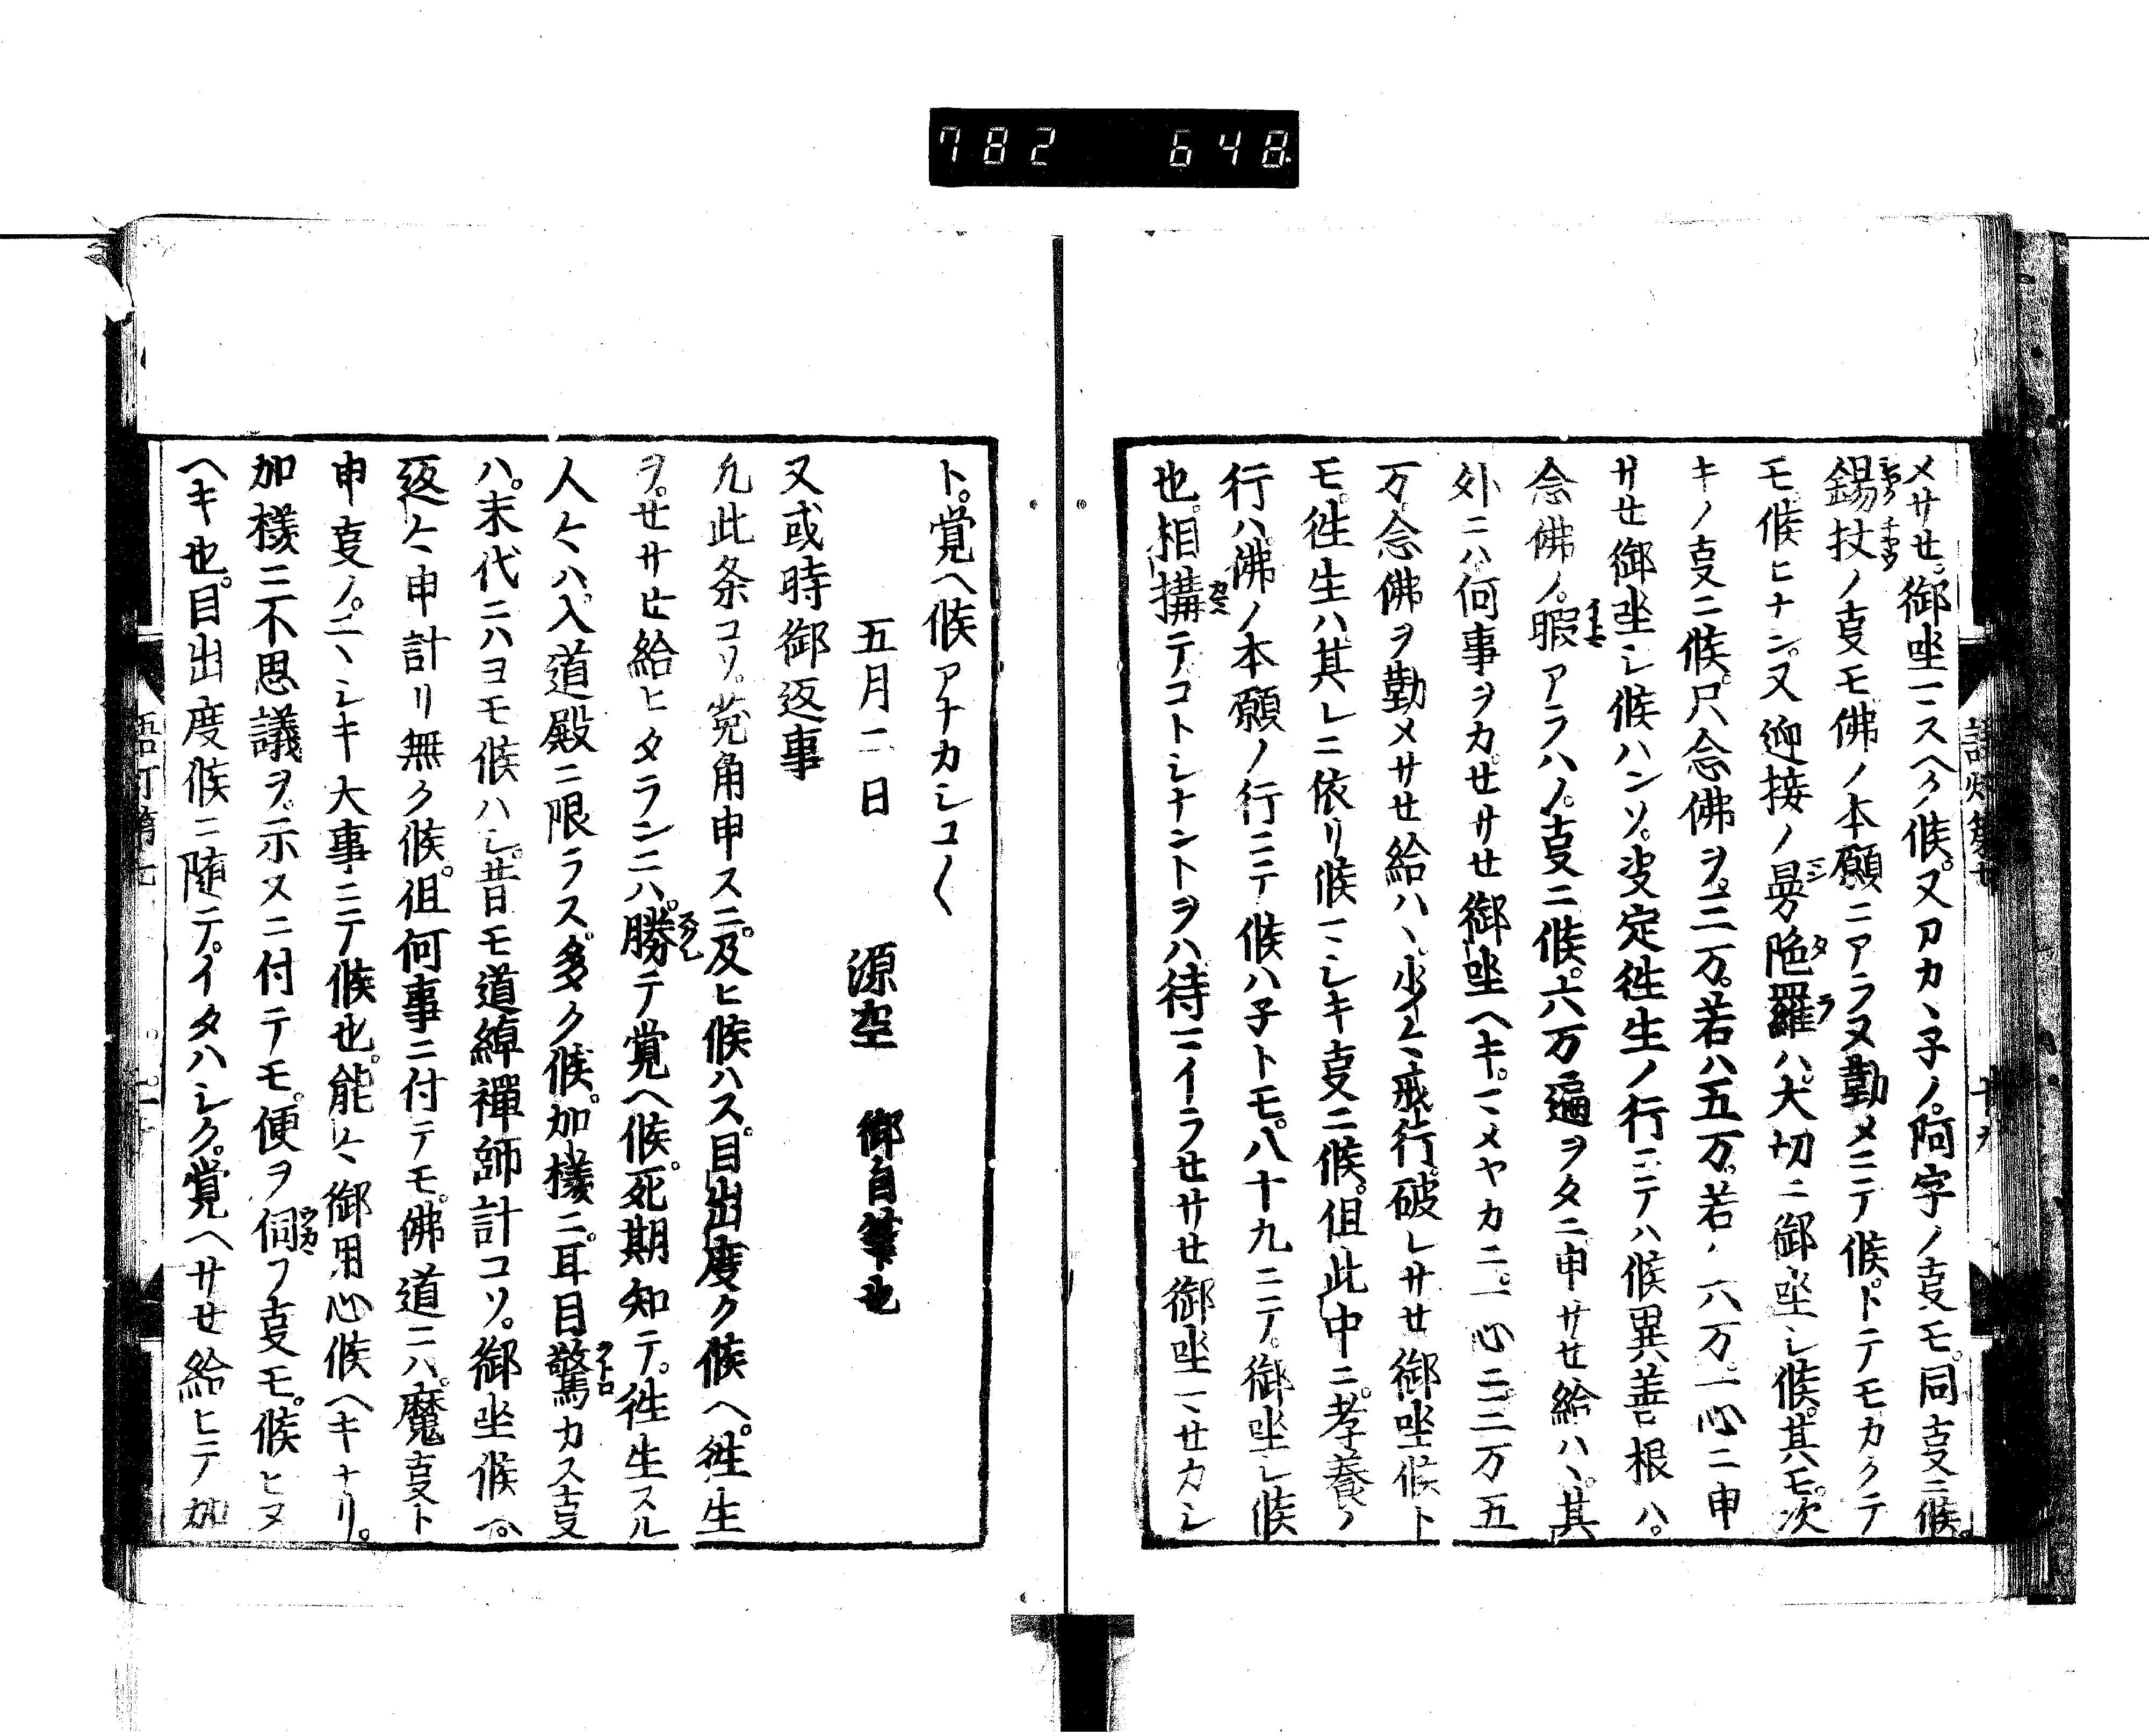 782 648
メサセ御坐マスヘク候。又アカヽ子ノ。阿字ノ㕝モ。同㕝ニ候。
錫杖ノ㕝モ佛ノ本願ニアラヌ勤メニテ候。トテモカクテ
モ。候ヒナン。又迎接ノ曼陀羅ハ。大切ニ御坐シ候。其モ。次
キノ㕝ニ候。只念佛ヲ。三万。若ハ五万。若ハ六万。一心ニ申
サセ御坐シ候ハンソ。决定徃生ノ行ニテハ候異善根ハ。
念佛ノ。暇アラハノ。㕝ニ候。六万遍ヲタニ申サセ給ハヽ。其
外ニハ何事ヲカ。セサセ御坐ヘキ。マメヤカニ。一心ニ。三万五
万。念佛ヲ勤メサセ給ハヽ。少々戒行。破レサセ御坐候ト
モ。徃生ハ其レニ依リ候マシキ㕝ニ候。但此中ニ。孝養ノ
行ハ佛ノ本願ノ行ニテ候ハ子トモ。八十九ニテ。御坐シ候
也。相構テ。コトシナントヲハ待マイラセサセ御坐マセカシ
ト。覚ヘ候アナカシコ〱
五月二日 源空 御自筆也
又或時御返事
凡此条コソ。菟角申スニ。及ヒ候ハス。目出度ク候ヘ。徃生
ヲ。セサセ給ヒタランニハ。勝テ覚ヘ候。死期知テ。徃生スル
人々ハ。入道殿ニ限ラス多ク候。加様ニ。耳目驚カス㕝
ハ。末代ニハヨモ候ハシ。昔モ道綽禪師計コソ。御坐候ヘ。
返々申計リ無ク候。但何事ニ付テモ。佛道ニハ。魔㕝ト
申㕝ノ。ユヽシキ大事ニテ候也。能々御用心候ヘキナリ。
加様ニ不思議ヲ。示スニ付テモ。便ヲ伺フ㕝モ。候ヒヌ
ヘキ也。目出度候ニ随テ。イタハシク。覚ヘサセ給ヒテ加